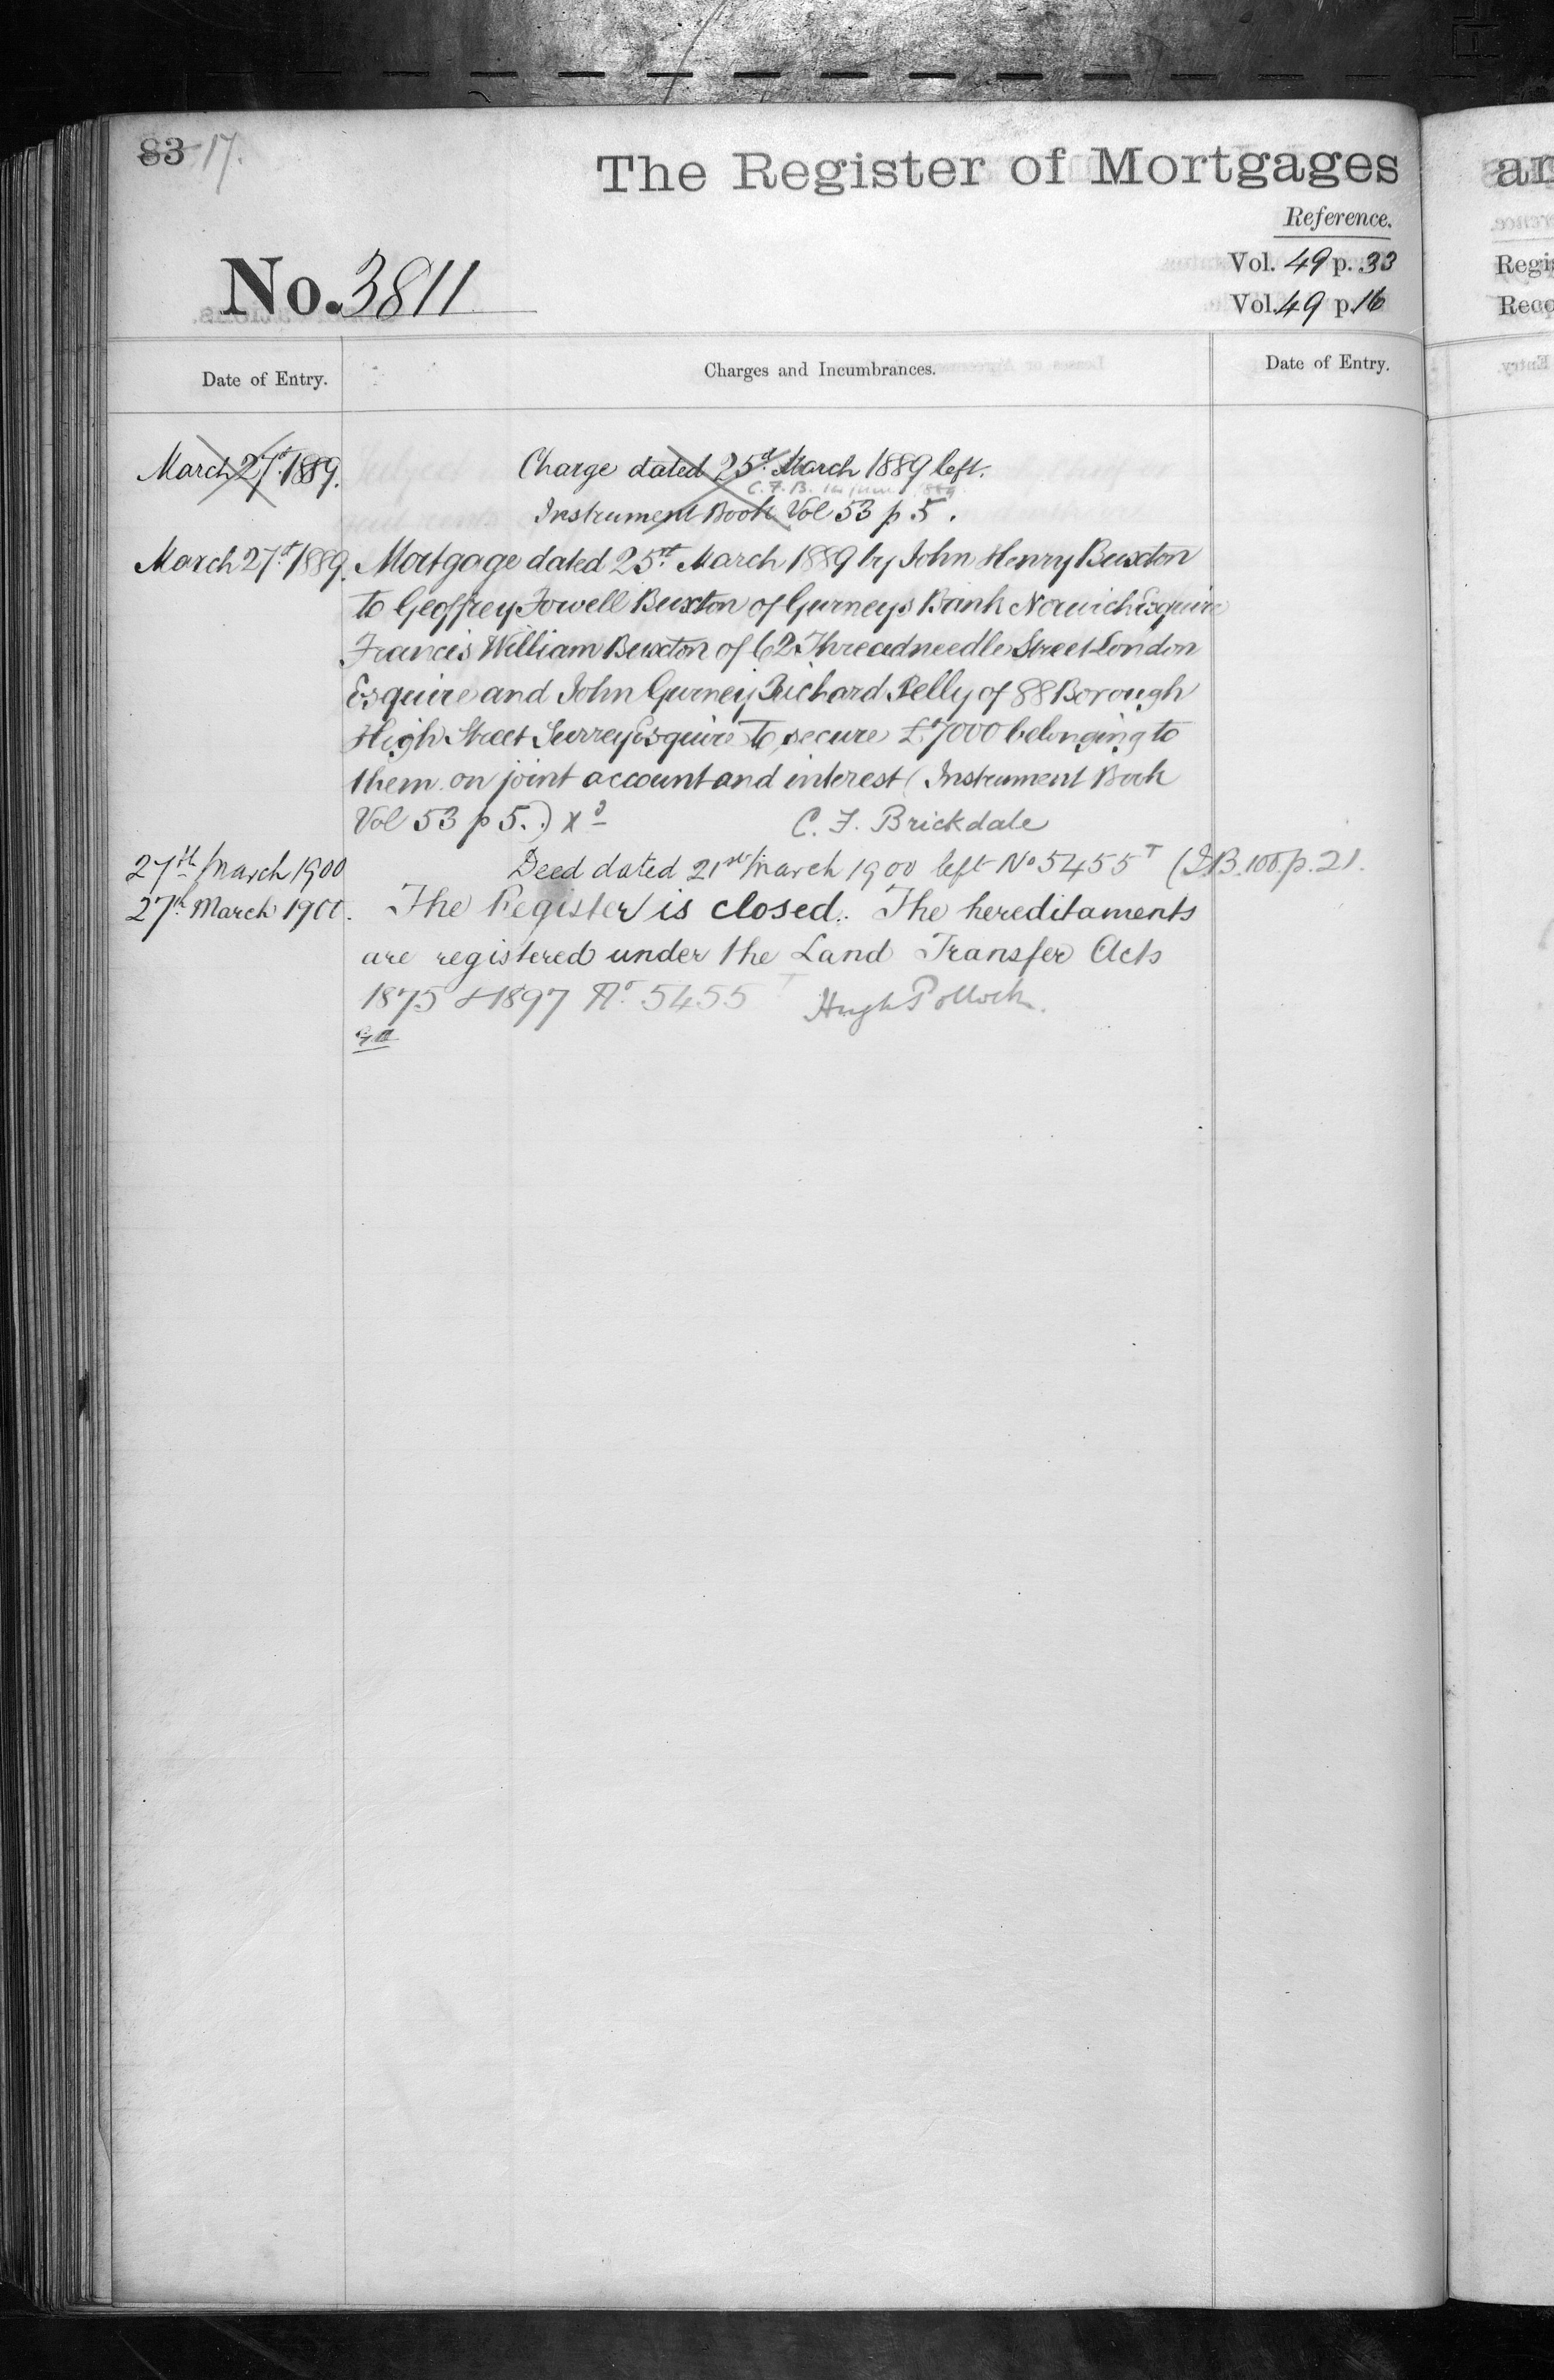 83 17.
The Register of Mortgages
Reference.
No. 3811
Vol. 49 p. 33
Vol. 49 p. 16
Date of Entry.
Charges and Incumbrances.
Date of Entry.
March 27th 1889.
Charge dated 25th March 1889 left.
C. F. B.
Instrument Book Vol 53 p 5.
March 27th 1889. Mortgage dated 25th March 1889 by John Henry Buxton
to Geoffrey Fowell Buxton of Gurneys Bank Norwich Esquire
Francis William Buxton of 62 Threadneedle Street London
Esquire and John Gurney Richard Pelly of 88 Borough
High Street Surrey Esquire To secure £7000 belonging to
them on joint account and interest (Instrument Book
Vol 53 p 5.) C. F. Brickdale
27th March 1900 Deed dated 21st March 1900 left No 5455 T (I.B. 100. p. 21.
27th March 1900. The Register is closed. The hereditaments
are registered under the Land Transfer Acts
1875 & 1897 No 5455 T Hugh Pollock.
ar
Regis
Reco